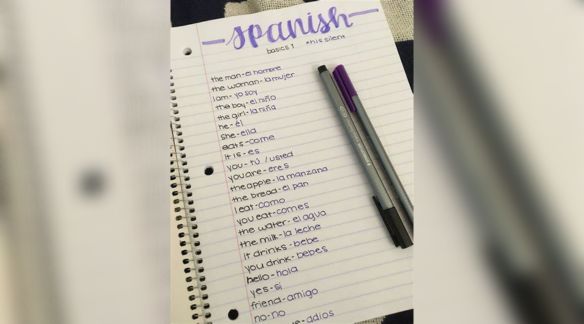 spanish
basics 1 *h is silent
the man-el hombre
the woman-la mujer
I am-yo soy
the boy-el niño
the girl-la niña
he-él
she-ella
eats-come
it is-es
you-tú/usted
you are-eres
the apple-la manzana
the bread-el pan
I eat-como
you eat-comes
the water-el agua
the milk-la leche
it drinks-bebe
you drink-bebes
hello-hola
yes-si
friend-amigo
no-no
-adios